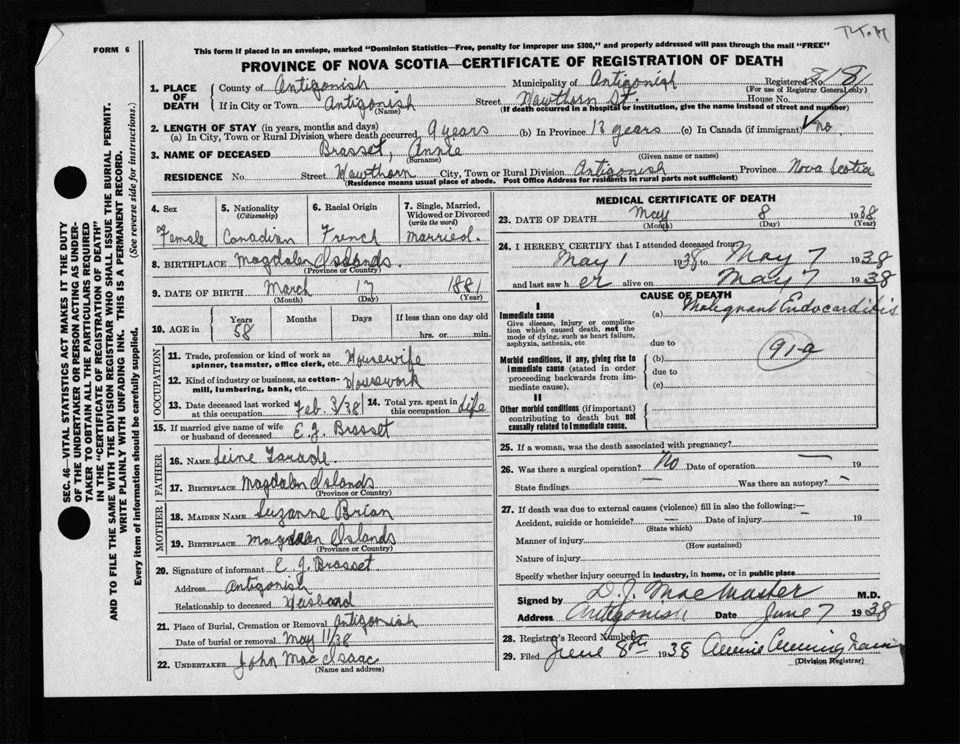 FORM 6
This form if placed in an envelope, marked "Dominion Statistics—Free, penalty for improper use $300," and properly addressed will pass through the mail "FREE"
PROVINCE OF NOVA SCOTIA—CERTIFICATE OF REGISTRATION OF DEATH
1. PLACE OF DEATH County of Antigonish Municipality of Antigonish Registered No. 8181
(For use of Registrar General only)
If in City or Town Antigonish Street Hawthorn St. House No.
(Name) (If death occurred in a hospital or institution, give the name instead of street and number)
2. LENGTH OF STAY (in years, months and days)
(a) In City, Town or Rural Division where death occurred 9 years (b) In Province 13 years (c) In Canada (if immigrant) no
3. NAME OF DECEASED Brasset, Annie
(Surname) (Given name or names)
RESIDENCE No. Street Hawthorn City, Town or Rural Division Antigonish Province Nova Scotia
(Residence means usual place of abode. Post Office Address for residents in rural parts not sufficient)
4. Sex 5. Nationality (Citizenship) 6. Racial Origin 7. Single, Married, Widowed or Divorced (write the word)
Female Canadian French Married.
8. BIRTHPLACE Magdalen Islands.
(Province or Country)
9. DATE OF BIRTH March 17 1881
(Month) (Day) (Year)
10. AGE in Years Months Days If less than one day old
58 hrs. or min.
OCCUPATION
11. Trade, profession or kind of work as spinner, teamster, office clerk, etc. Housewife
12. Kind of industry or business, as cotton-mill, lumbering, bank, etc. Housework
13. Date deceased last worked at this occupation Feb. 3/38 14. Total yrs. spent in this occupation Life
15. If married give name of wife or husband of deceased E. J. Brasset
FATHER
16. NAME
17. BIRTHPLACE Magdalen Islands
(Province or Country)
MOTHER
18. MAIDEN NAME Suzanne Brian
19. BIRTHPLACE Magdalen Islands
(Province or Country)
20. Signature of informant E. J. Brasset
Address Antigonish
Relationship to deceased Husband
21. Place of Burial, Cremation or Removal Antigonish
Date of burial or removal May 11/38
22. UNDERTAKER John MacIssac
(Name and address)
MEDICAL CERTIFICATE OF DEATH
23. DATE OF DEATH May 8 1938
(Month) (Day) (Year)
24. I HEREBY CERTIFY that I attended deceased from:
May 1 1938 to May 7 1938
and last saw her alive on May 7 1938
CAUSE OF DEATH
I
Immediate cause (a) Malignant Endocarditis
Give disease, injury or complication which caused death, not the mode of dying, such as heart failure, asphyxia, asthenia, etc.
due to
91-a
Morbid conditions, if any, giving rise to immediate cause (stated in order proceeding backwards from immediate cause).
(b)
due to
(c)
II
Other morbid conditions (if important) contributing to death but not causally related to immediate cause.
25. If a woman, was the death associated with pregnancy?
26. Was there a surgical operation? No Date of operation — 19
State findings — Was there an autopsy? -
27. If death was due to external causes (violence) fill in also the following:—
Accident, suicide or homicide? — Date of injury — 19
(State which)
Manner of injury
(How sustained)
Nature of injury
Specify whether injury occurred in industry, in home, or in public place
Signed by D. J. MacMaster M.D.
Address Antigonish Date June 7 1938
28. Registrar's Record Number
29. Filed June 8th 1938 Annie
(Division Registrar)
SEC. 46—VITAL STATISTICS ACT MAKES IT THE DUTY
OF THE UNDERTAKER OR PERSON ACTING AS UNDER-
TAKER TO OBTAIN ALL THE PARTICULARS REQUIRED
IN THE "CERTIFICATE OF REGISTRATION OF DEATH"
AND TO FILE THE SAME WITH THE DIVISION REGISTRAR WHO SHALL ISSUE THE BURIAL PERMIT.
WRITE PLAINLY WITH UNFADING INK. THIS IS A PERMANENT RECORD.
Every item of information should be carefully supplied. (See reverse side for instructions.)